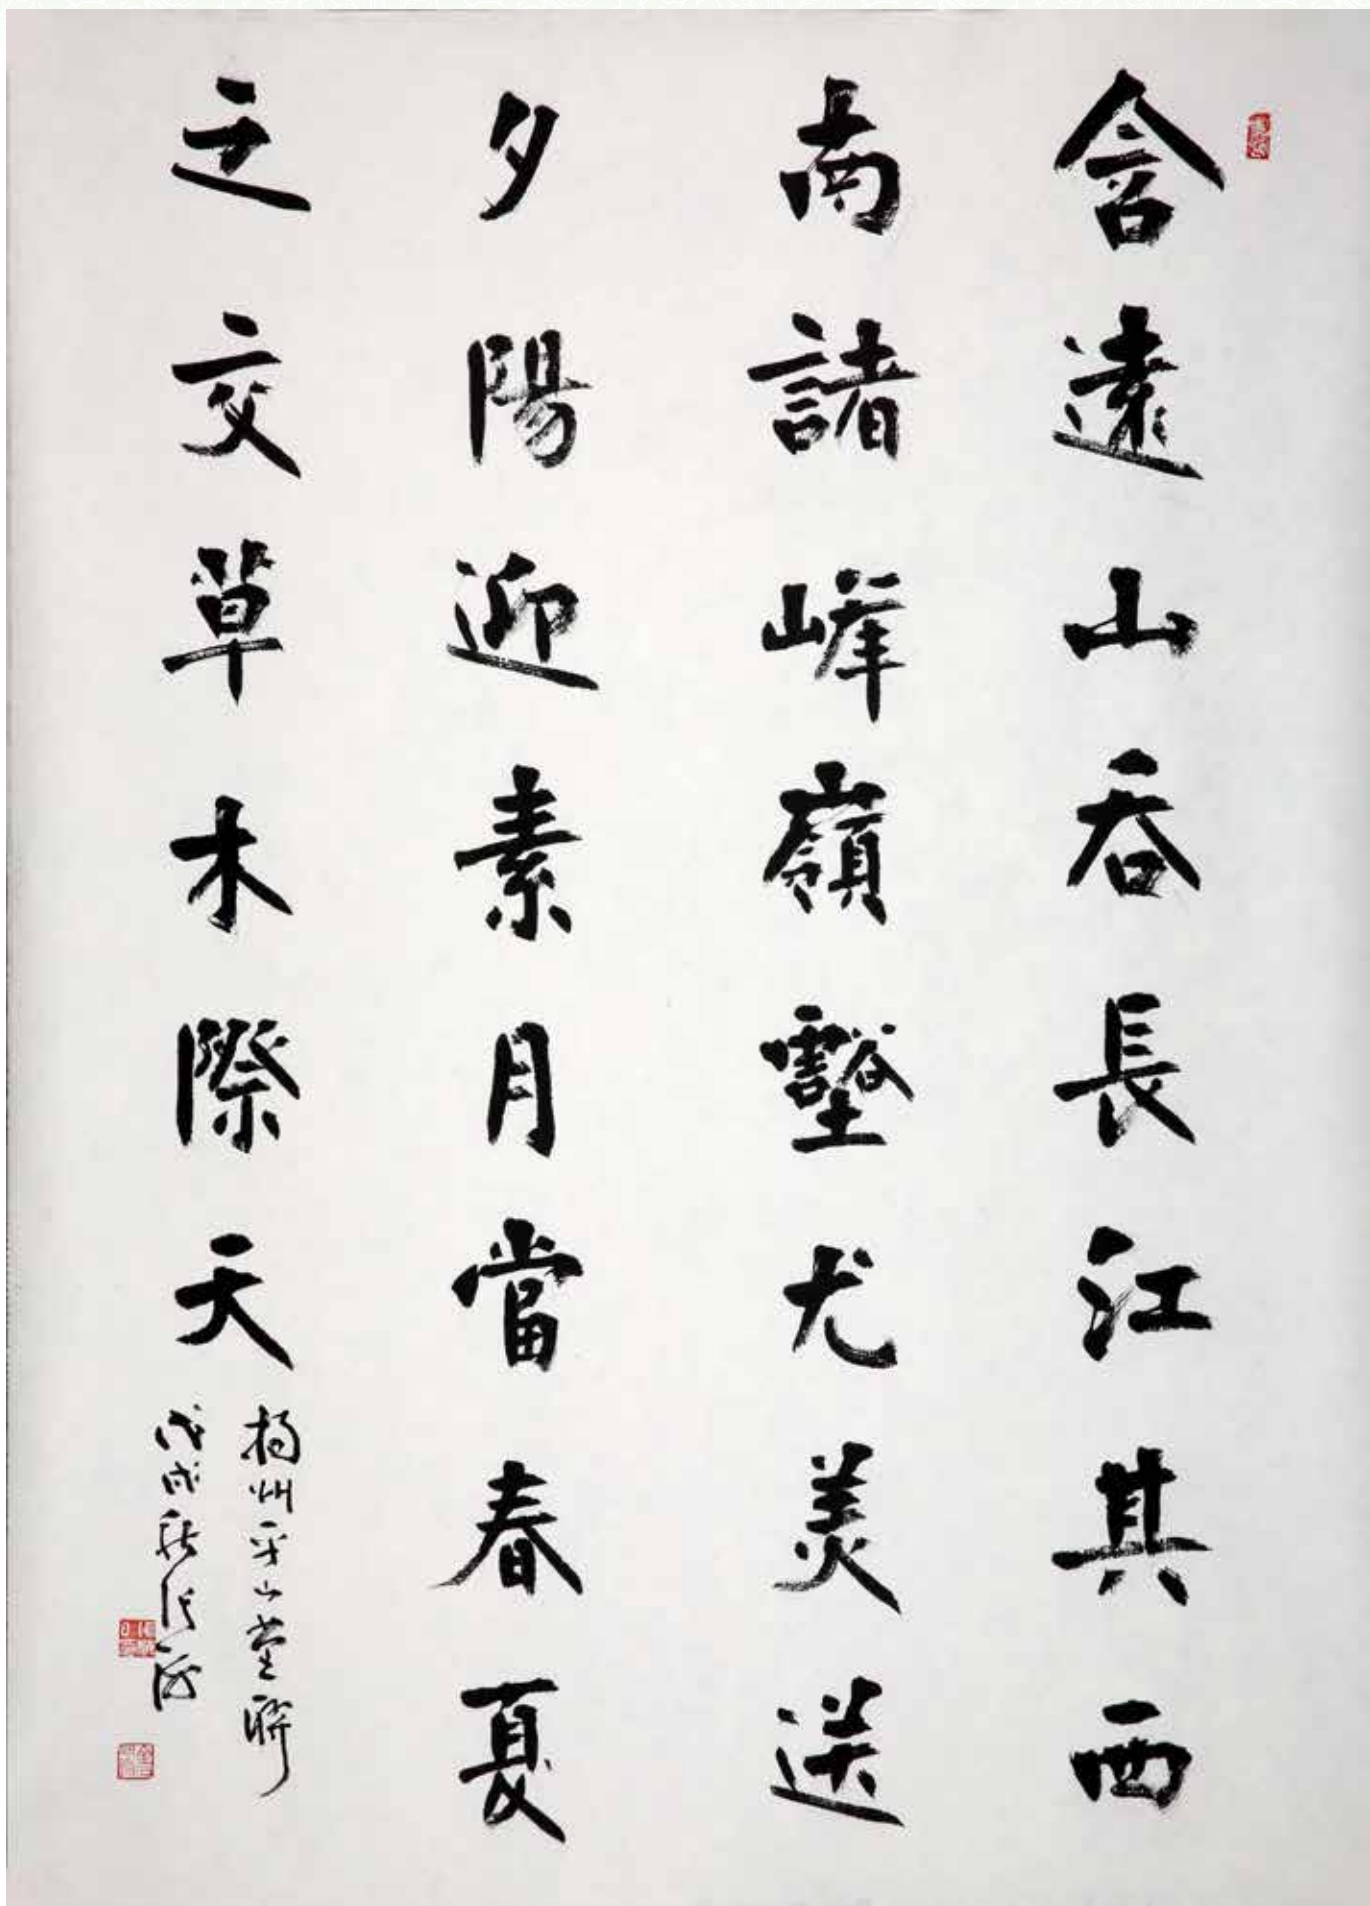 含遠山吞長江其西
南諸峰嶺壑尤美送
夕陽迎素月當春夏
之交草木際天
揚州平山堂聯
戊戌秋